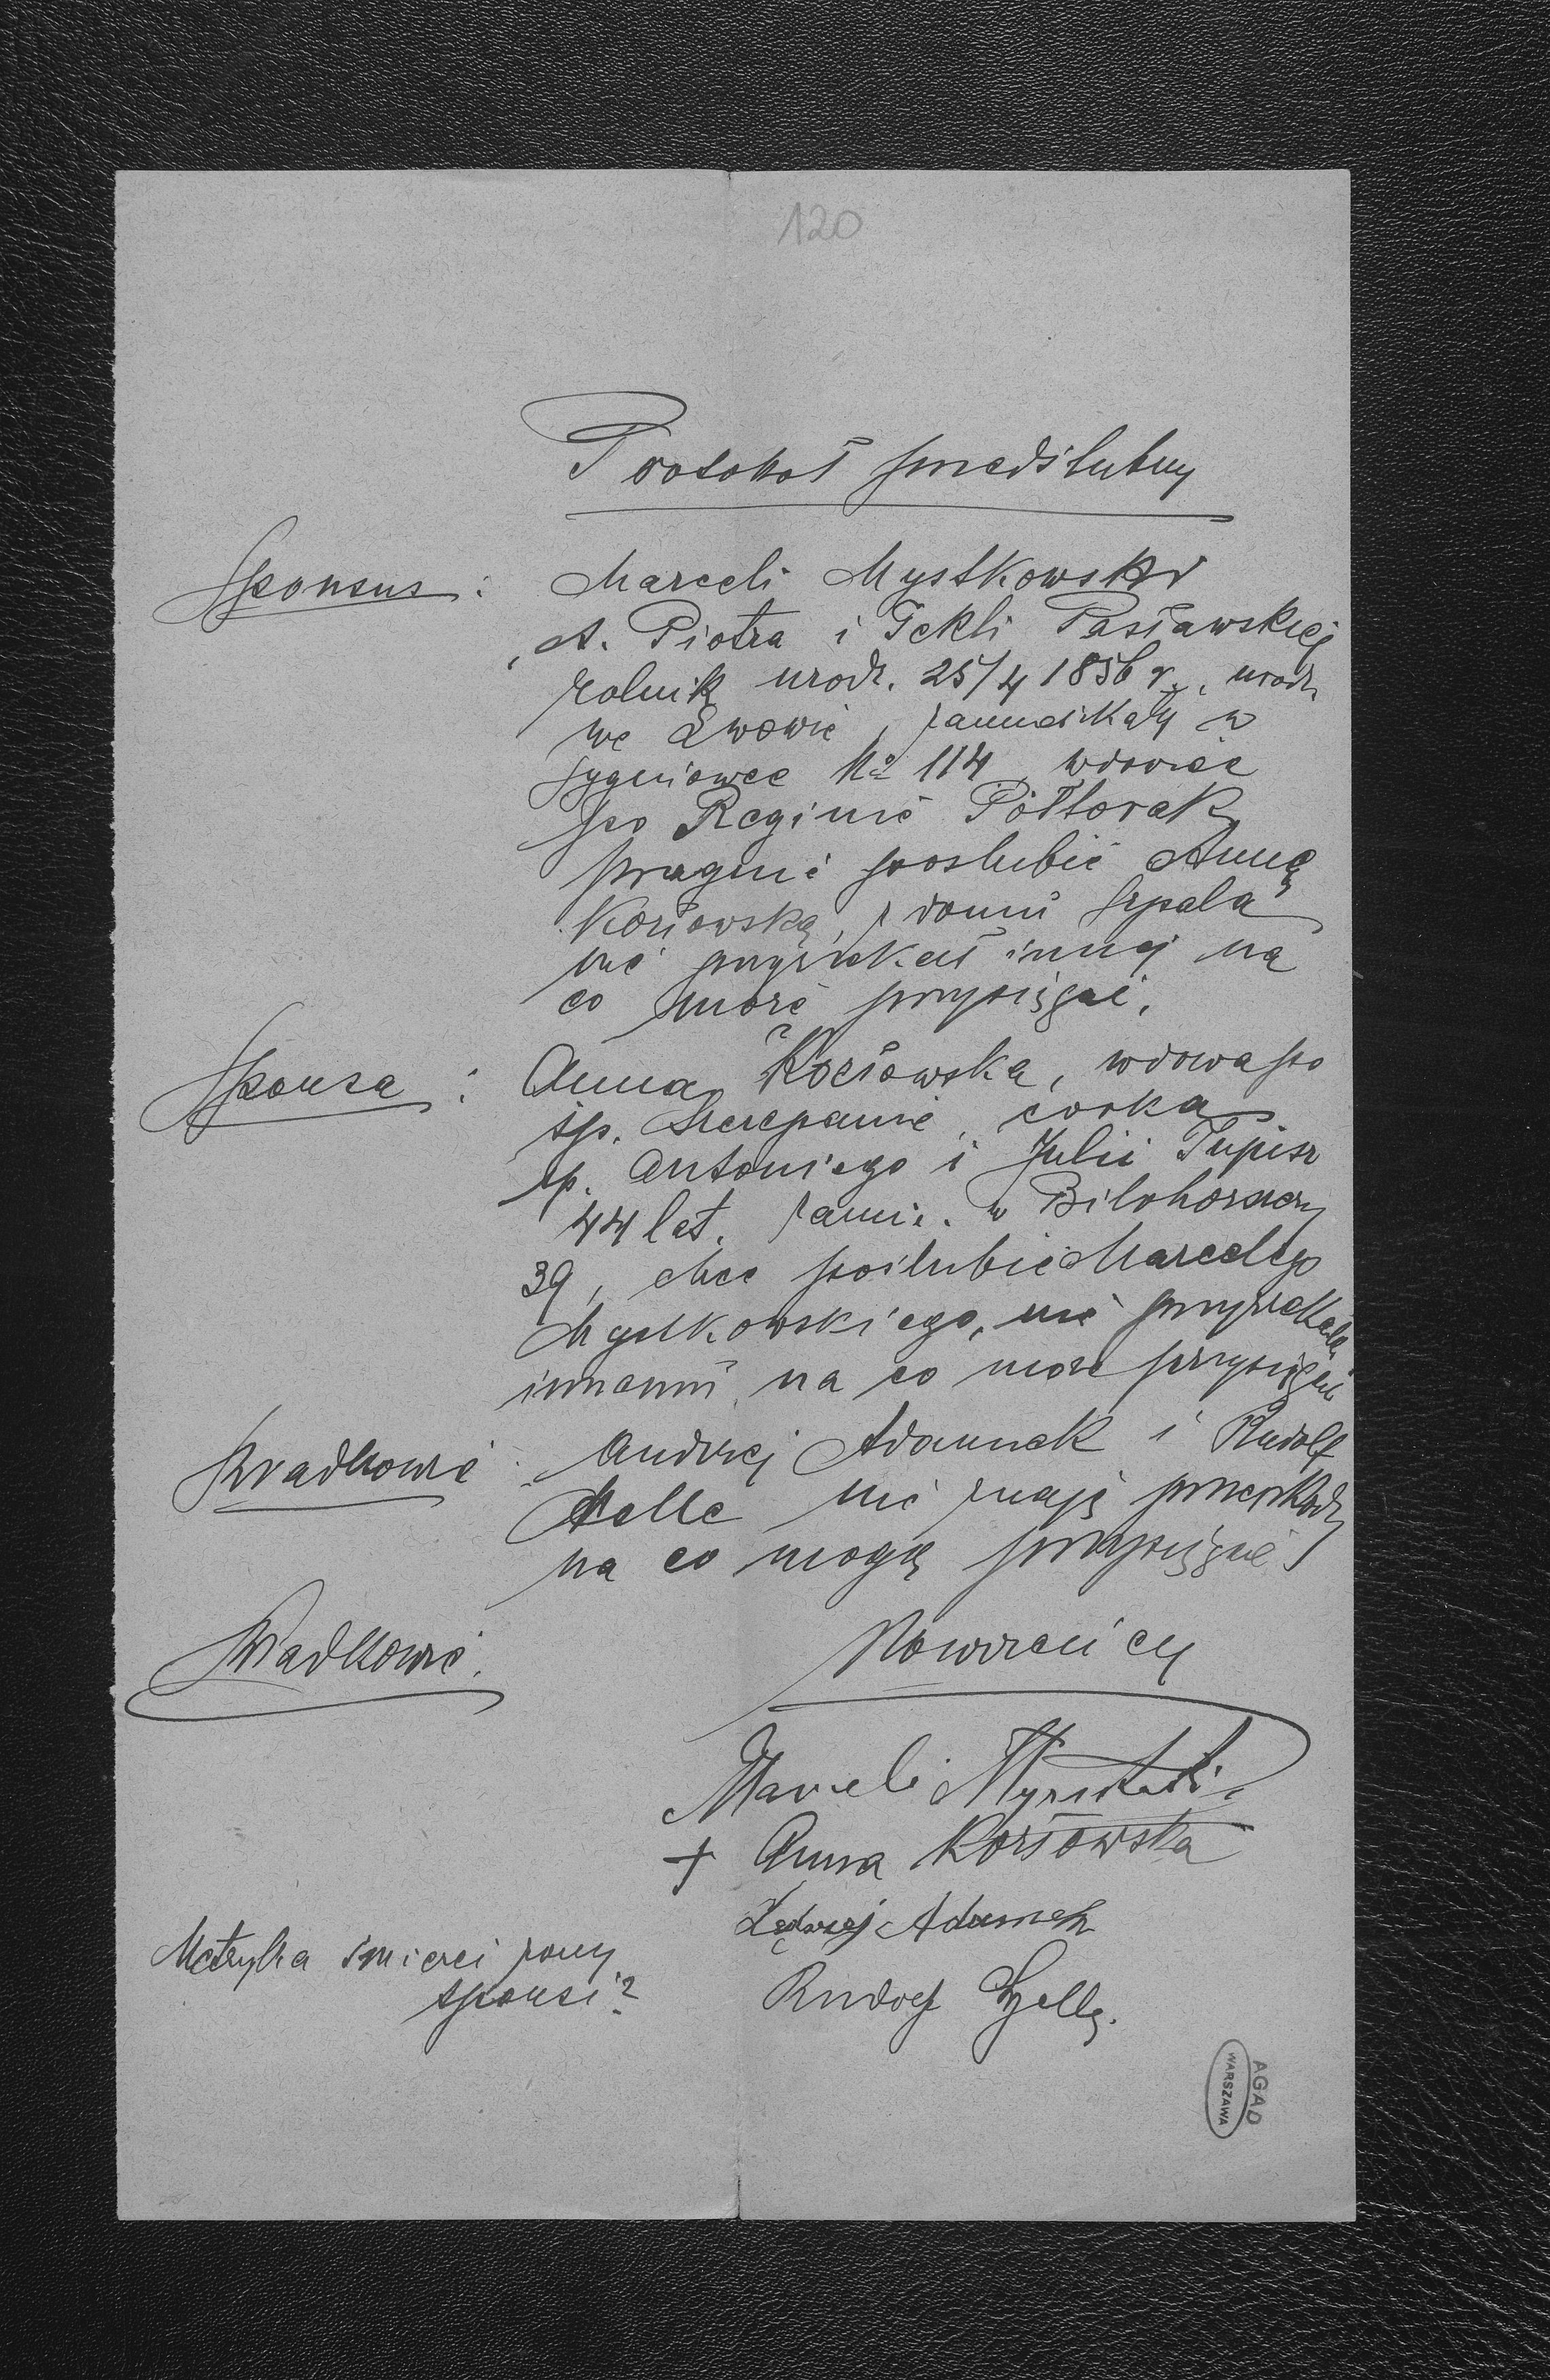 120
Protokoł przedślubny
Sponsus : Marceli Mystkowski
s. Piotra i Tekli Pasławskiej
rolnik urodz. 25/4 1856 r., urodz.
we Lwowie, zamieszkały w
Sygniowce No 114, wdowiec
po Reginie Półtorak
pragnie poślubić Annę
Kozłowską, z domu Szpala
nie przyrzekał innej na
co może przysięgać.
Sponsa : Anna Kozłowska, wdowa po
śp. Szczepanie, córka
śp. Antoniego i Julii
44 lat. zamie. w Bilohorszczy
39, chce poślubić Marcelego
Mystkowskiego, nie przyrzekała
innemu, na co może przysięgać
Świadkowie : Andrzej Adamek i Rudolf
nie znają przeszkody
na co mogą przysięgać
Świadkowie. Nowożeńcy
Marceli
+ Anna Kozłowska
Adamek
Metryka śmierci żony
sponsi? Rudolf
AGAD
WARSZAWA